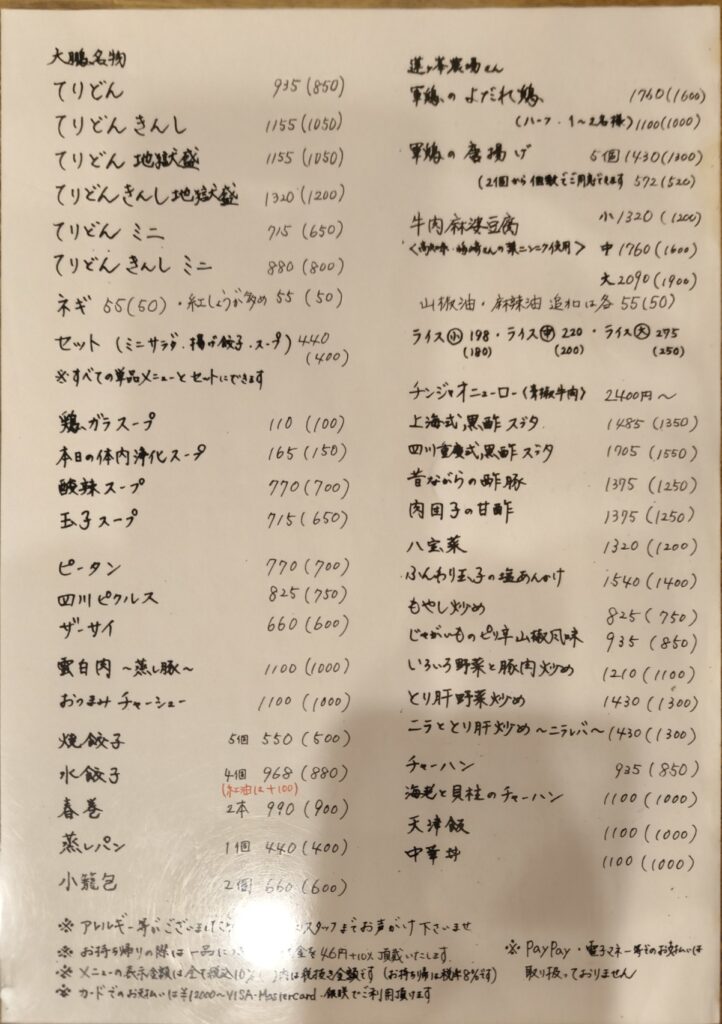 大鵬名物
てりどん 935(850)
てりどん きんし 1155(1050)
てりどん 地獄盛 1155(1050)
てりどん きんし 地獄盛 1320(1200)
てりどん ミニ 715(650)
てりどん きんし ミニ 880(800)
ネギ 55(50)・紅しょうが多め 55(50)
セット (ミニサラダ・揚げ餃子・スープ) 440
(400)
※すべての単品メニューとセットにできます
鶏ガラスープ 110(100)
本日の体内浄化スープ 165(150)
酸辣スープ 770(700)
玉子スープ 715(650)
ピータン 770(700)
四川ピクルス 825(750)
ザーサイ 660(600)
雲白肉 〜蒸し豚〜 1100(1000)
おつまみ チャーシュー 1100(1000)
焼餃子 5個 550(500)
水餃子 4個 968(880)
(紅油は+100)
春巻 2本 990(900)
蒸しパン 1個 440(400)
小籠包 2個 660(600)
※ アレルギー等がございまし スタッフまでお声がけ下さいませ
※ お持ち帰りの際は一品につ 金を46円+10% 頂戴いたします
※ メニューの表示金額は全て税込10% ( )内は税抜き金額です (お持ち帰りは税率8%です)
※ カードでのお支払いは¥12000〜VISA・MasterCard・銀聯でご利用頂けます
蓮ヶ峯農場さん
軍鶏の よだれ鶏 1760(1600)
(ハーフ・1〜2名様) 1100(1000)
軍鶏の 唐揚げ 5個 1430(1300)
(2個から個数でご用意できます 572(520)
牛肉麻婆豆腐 小 1320(1200)
さんの葉ニンニク使用〉 中 1760(1600)
大 2090(1900)
山椒油・麻辣油 追加は各 55(50)
ライス小 198・ライス中 220・ライス大 275
(180) (200) (250)
チンジャオニューロー(青椒牛肉) 2400円〜
上海式黒酢スブタ 1485(1350)
四川重慶式黒酢スブタ 1705(1550)
昔ながらの酢豚 1375(1250)
肉団子の甘酢 1375(1250)
八宝菜 1320(1200)
ふんわり玉子の塩あんかけ 1540(1400)
もやし炒め 825(750)
じゃがいものピリ辛山椒風味 935(850)
いろいろ野菜と豚肉炒め 1210(1100)
とり肝野菜炒め 1430(1300)
ニラととり肝炒め〜ニラレバ〜 1430(1300)
チャーハン 935(850)
海老と貝柱のチャーハン 1100(1000)
天津飯 1100(1000)
中華丼 1100(1000)
※ PayPay・電子マネー等でのお支払いは
取り扱っておりません